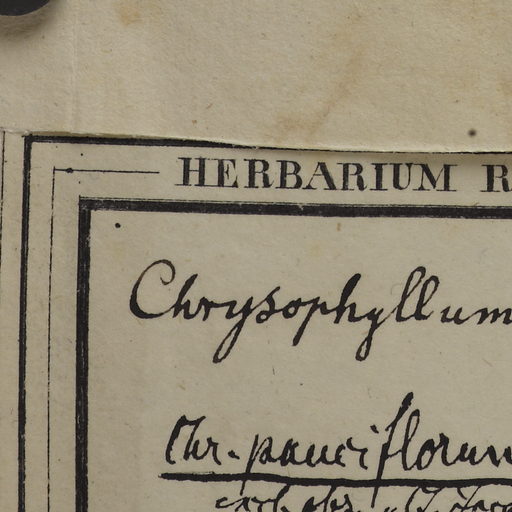 HERBARIUM R
Chrysophyllum
Chr. pauciflorum